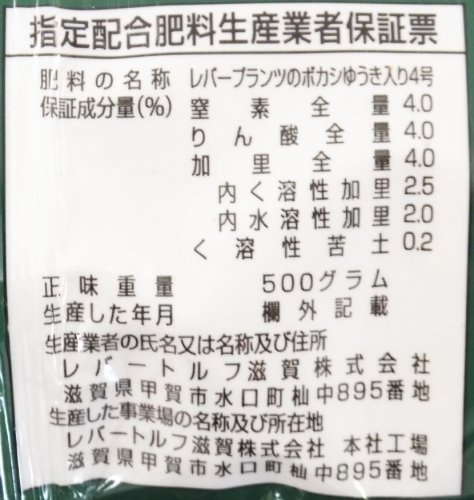 指定配合肥料生産業者保証票
肥料の名称 レバープランツのボカシゆうき入り4号
保証成分量(%) 窒素全量 4.0
りん酸全量 4.0
加里全量 4.0
内く溶性加里 2.5
内水溶性加里 2.0
く溶性苦土 0.2
正味重量 500グラム
生産した年月 欄外記載
生産業者の氏名又は名称及び住所
レバートルフ滋賀株式会社
滋賀県甲賀市水口町杣中895番地
生産した事業場の名称及び所在地
レバートルフ滋賀株式会社 本社工場
滋賀県甲賀市水口町杣中895番地